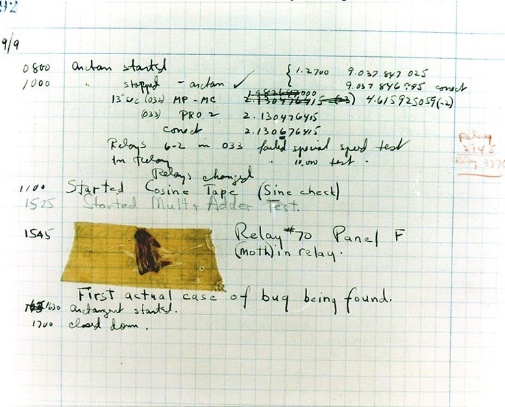 92
9/9
0800 Antan started
1000 " stopped - antan ✓ { 1.2700 9.037 847 025
9.037 846 995 correct
13"uc (032) MP - MC 2.130476415 4.615925059(-2)
(033) PRO 2 2.130476415
correct 2.130676415
Relays 6-2 in 033 failed special speed test
in relay " 10,000 test .
Relay
Relays changed
1100 Started Cosine Tape (Sine check)
1525 Started Mult + Adder Test.
1545 Relay #70 Panel F
(moth) in relay.
First actual case of bug being found.
1630 antangent started.
1700 closed down.